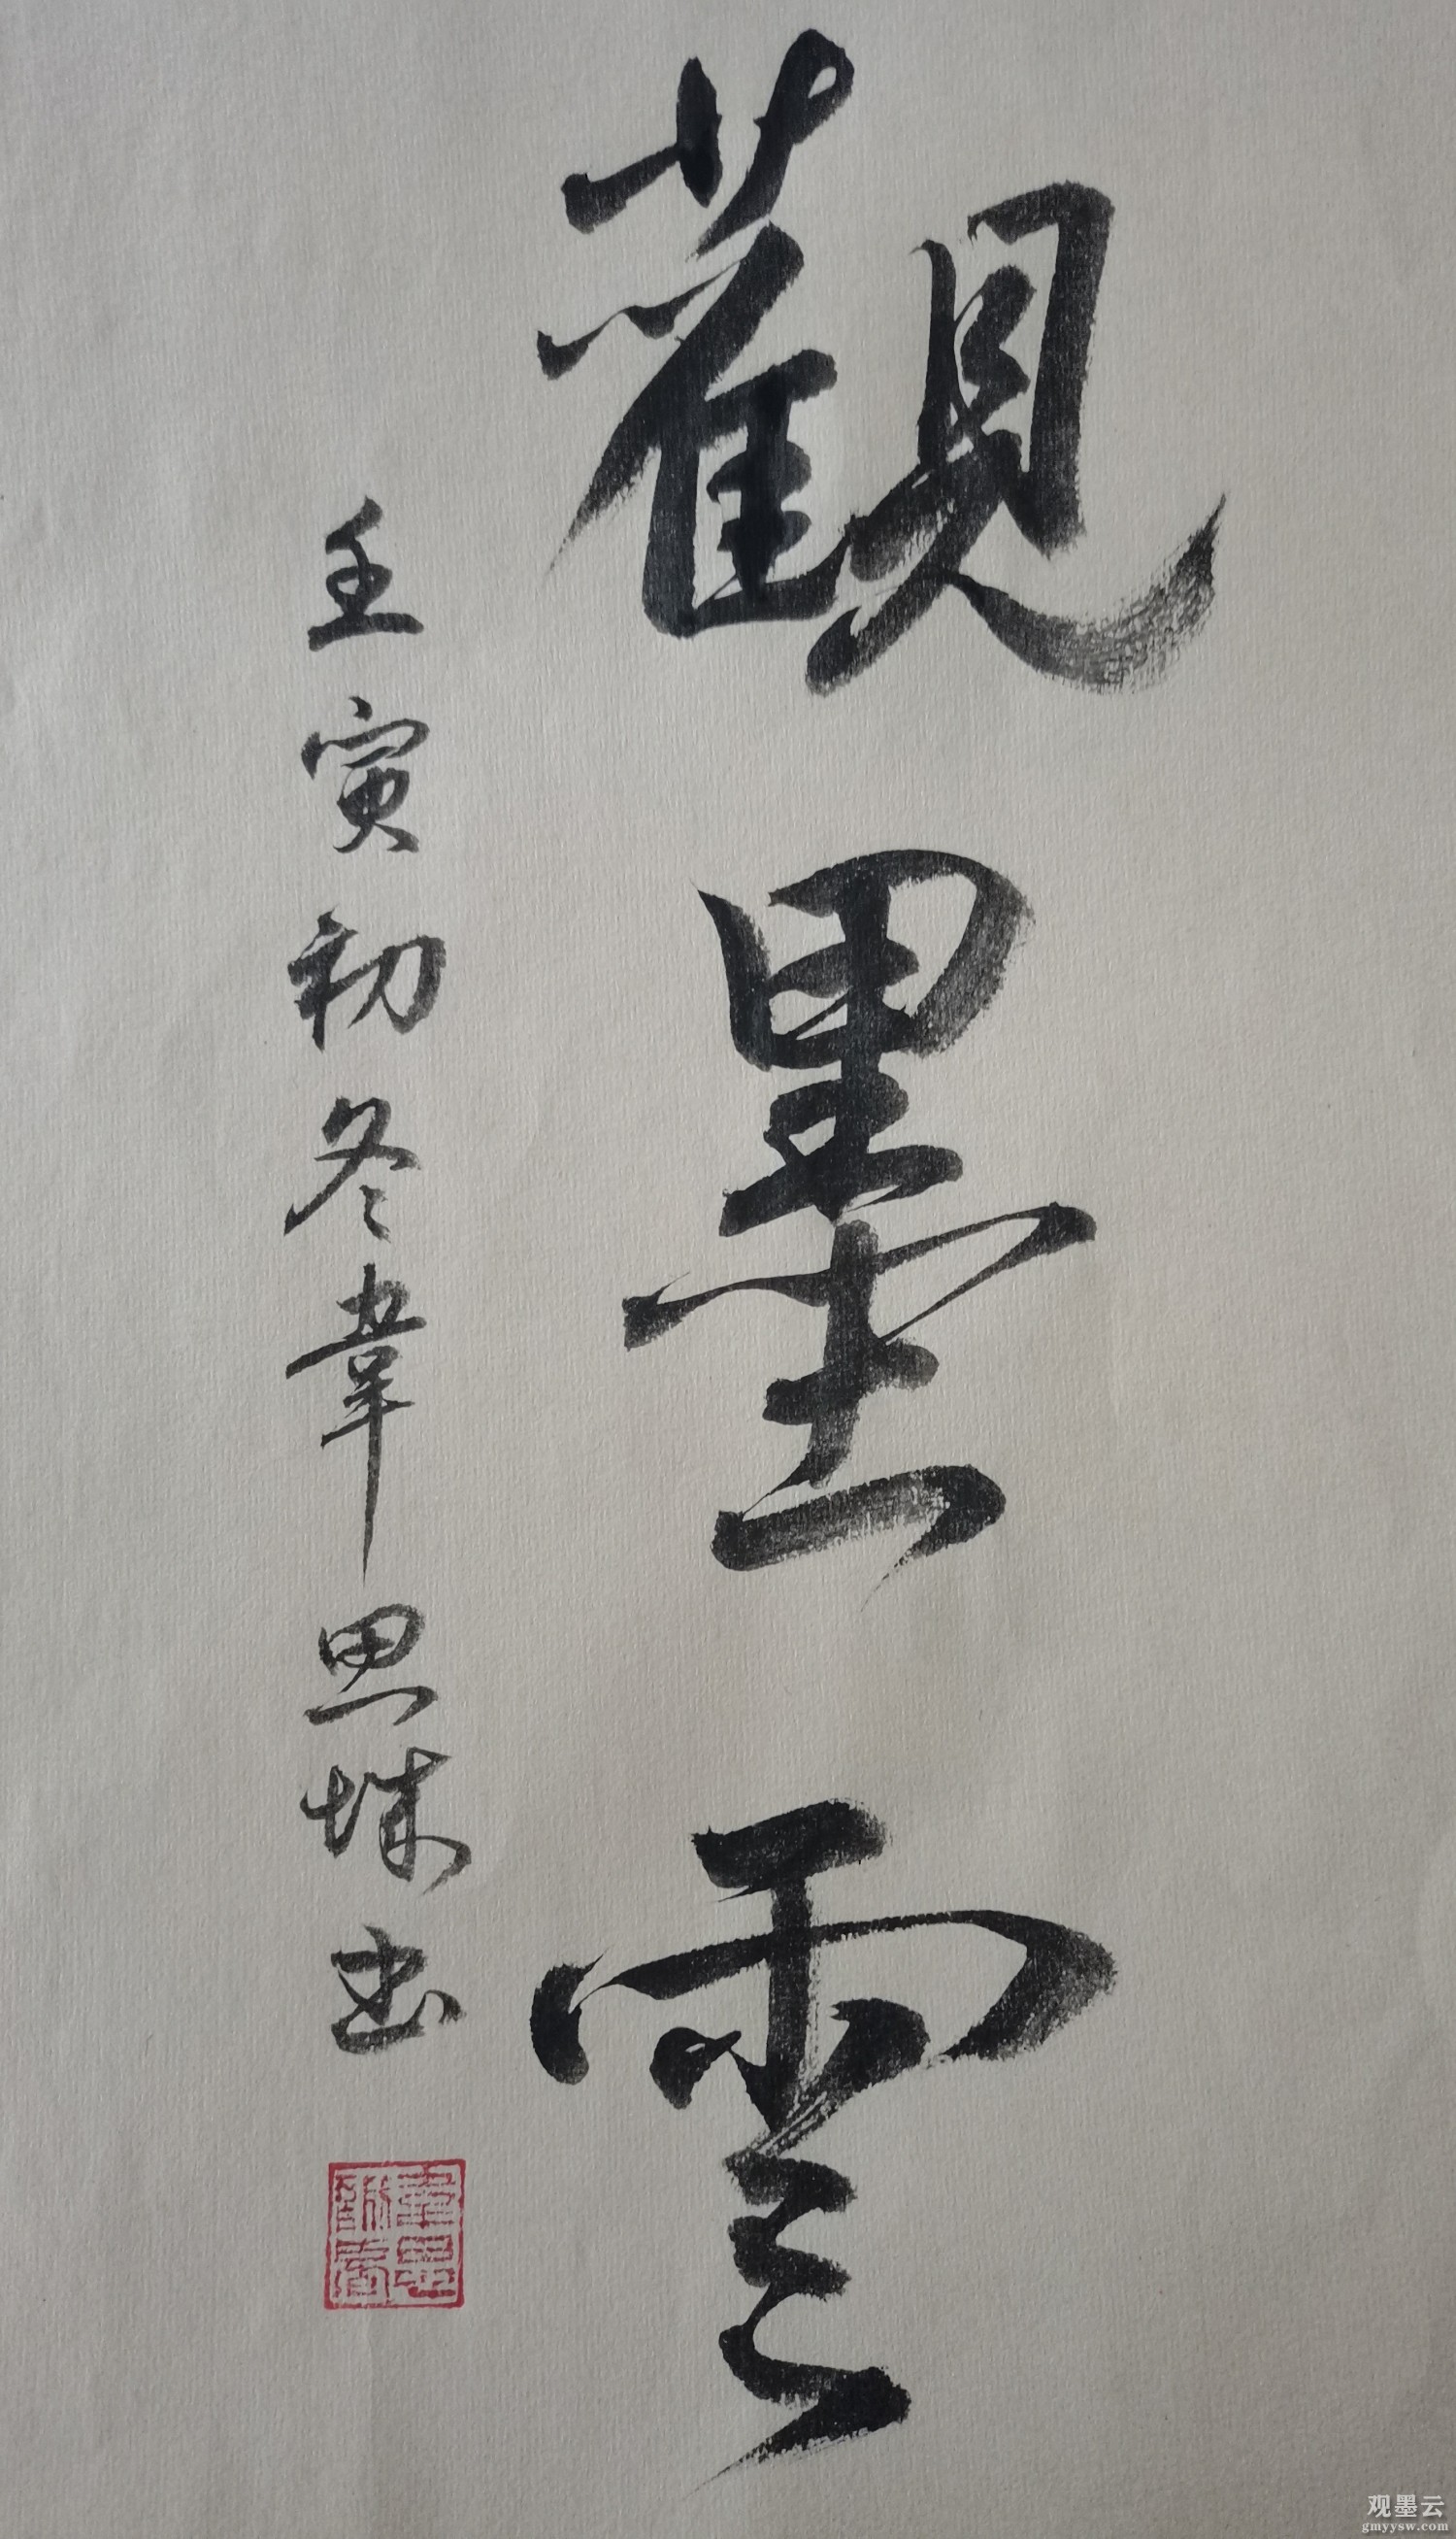 觀墨雲
壬寅初冬韋思城書
韋思誠書
观墨云
gmyysw.com